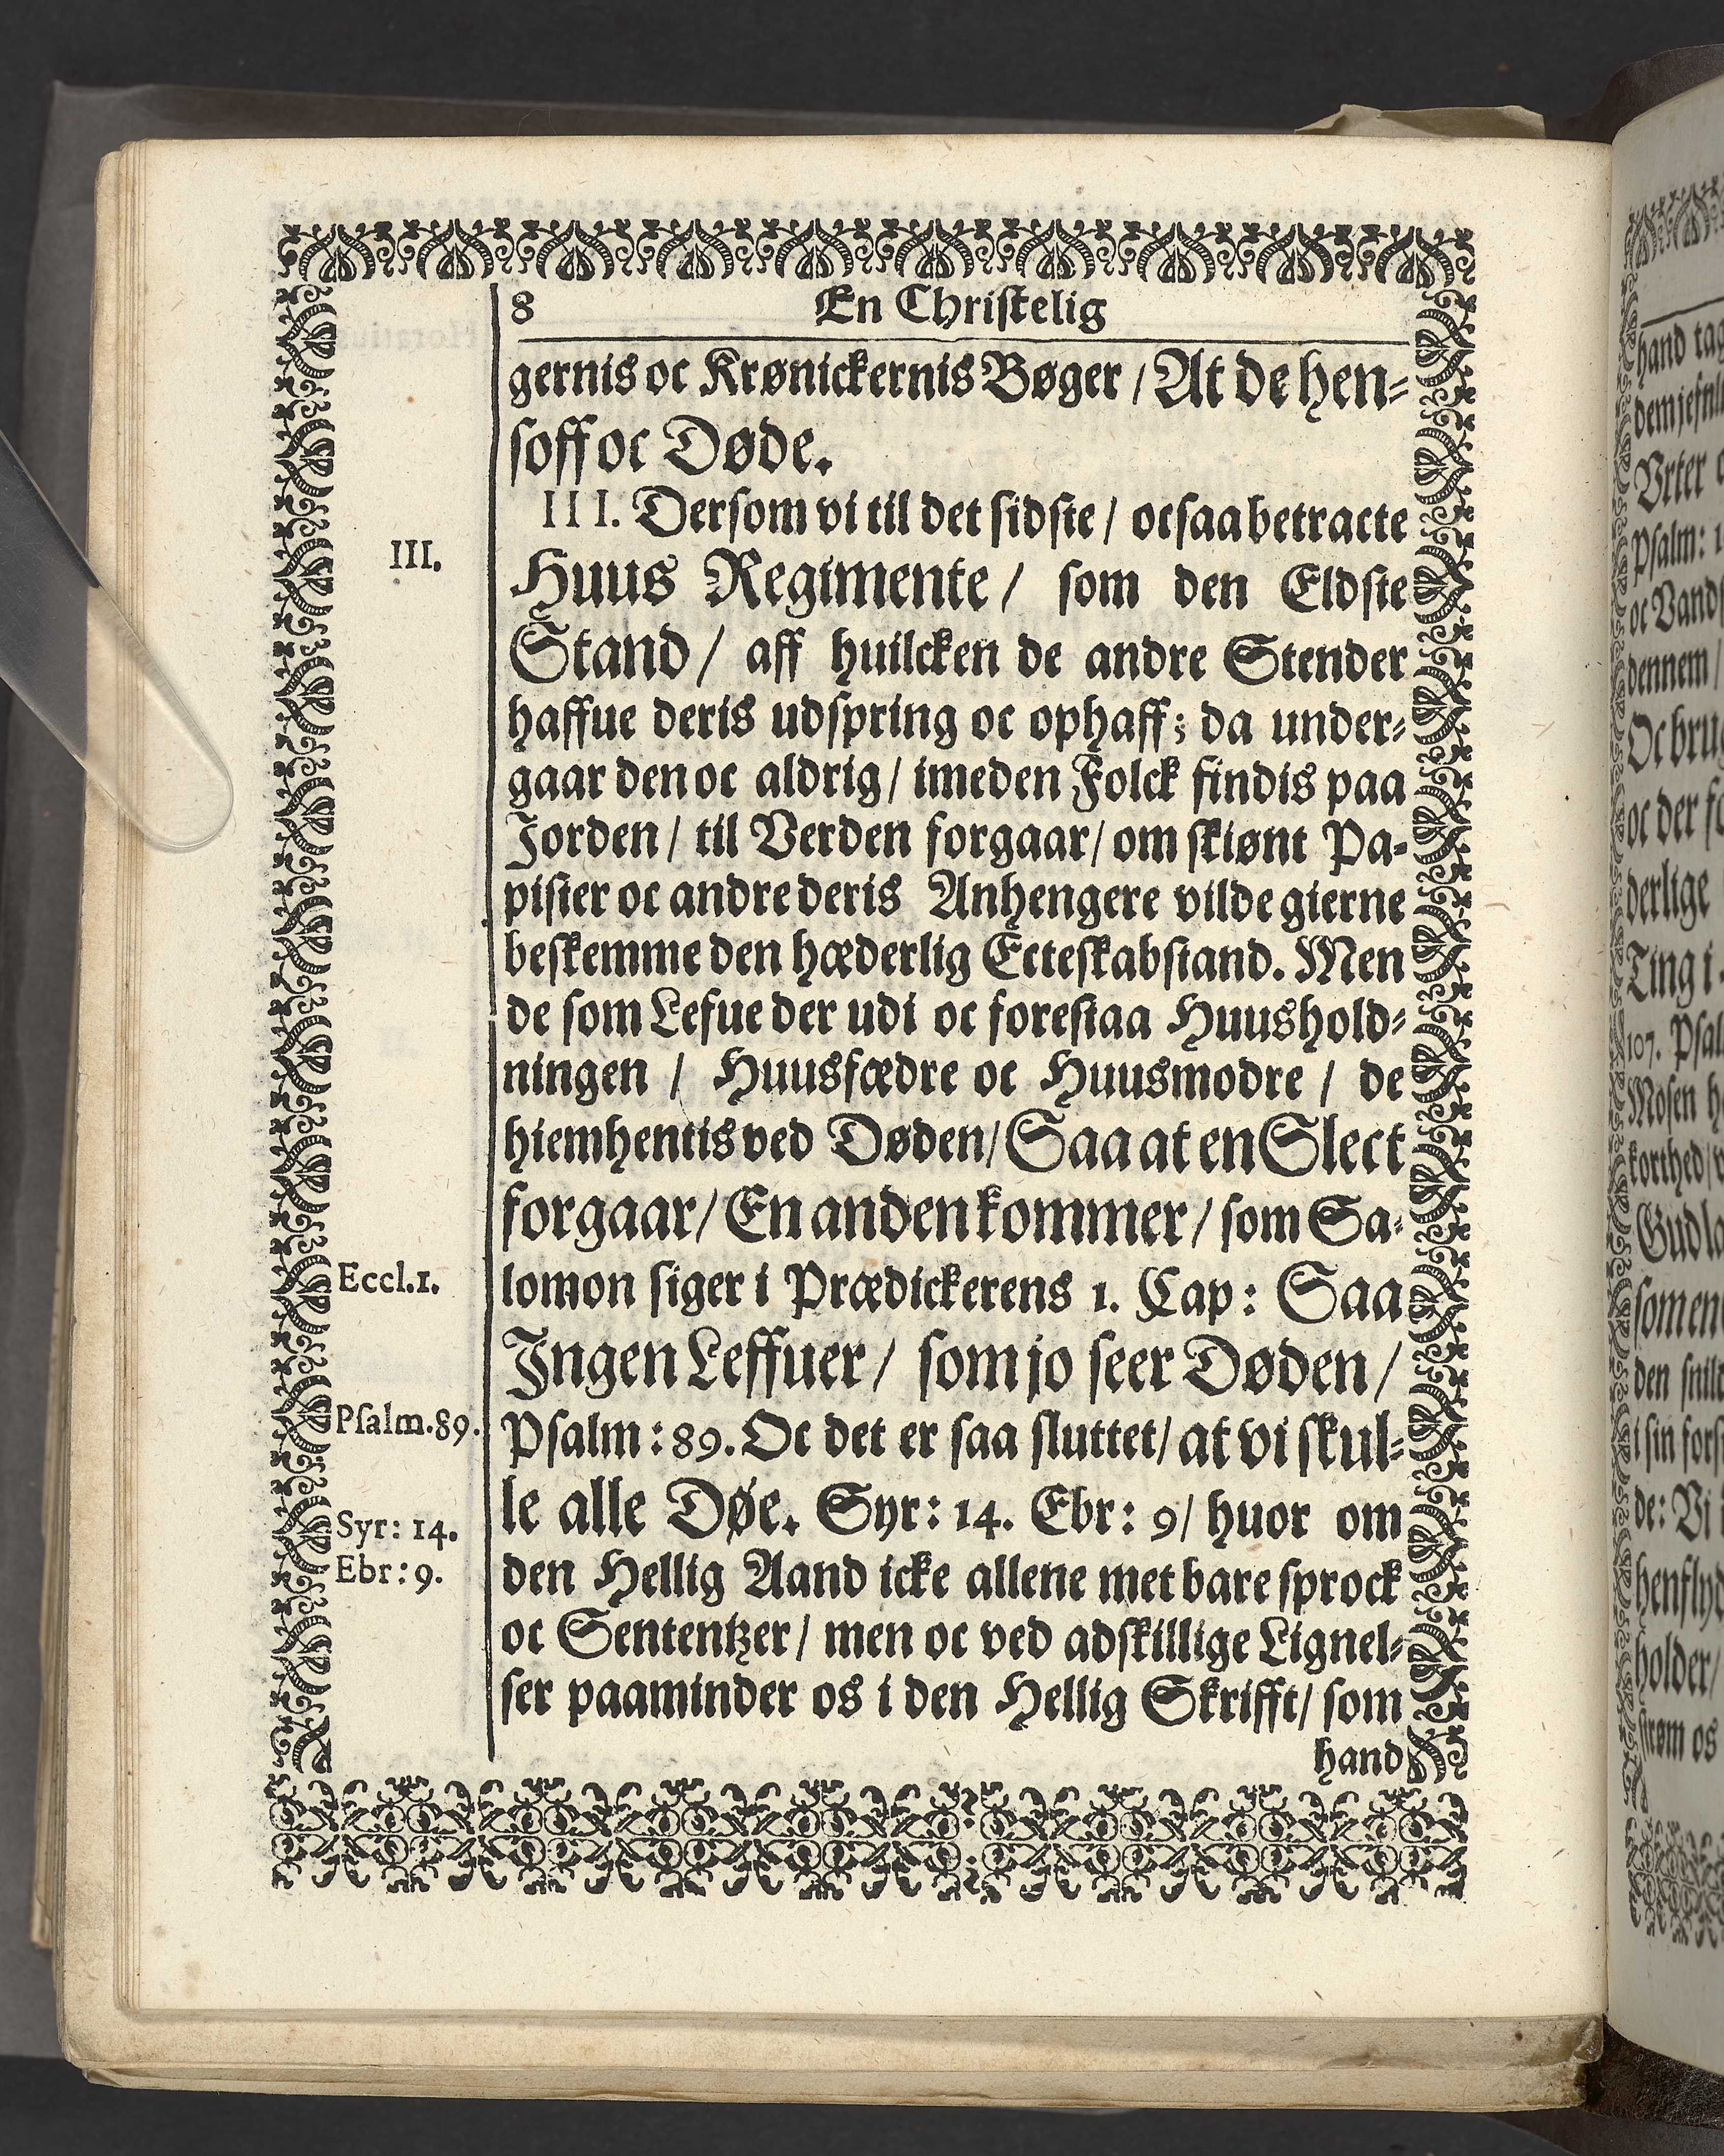 8 En Christelig
gernis oc Krønickernis Bøger / At de hen-
soff oc Døde.
III. Dersom vi til det sidste / ocsaa betracte
III.
Huus Regimente / som den Eldste
Stand / aff huilcken de andre Stender
haffue deris udspring oc ophaff; da under-
gaar den oc aldrig / imeden Folck findis paa
Jorden / til Verden forgaar / om skiønt Pa-
pister oc andre deris Anhengere vilde gierne
beskemme den hæderlig Ecteskabstand. Men
de som Lefue der udi oc forestaa Huushold-
ningen / Huusfædre oc Huusmodre / de
hiemhentis ved Døden / Saa at en Slect
forgaar / En anden kommer / som Sa-
Eccl.1.
lomon siger i Prædickerens 1. Cap: Saa
Ingen Leffuer / som jo seer Døden /
Psalm.89.
Psalm: 89. Oc det er saa sluttet / at vi skul-
le alle Døe. Syr: 14. Ebr: 9 / huor om
Syr: 14.
Ebr: 9.
den Hellig Aand icke allene met bare sprock
oc Sententzer / men oc ved adskillige Lignel-
ser paaminder os i den Hellig Skrifft / som
hand
hand tag
Vrter
Psalm: 1
oc Vand
dennem /
Oc bru
oc der
derlige
Ting i
107. Psal
Mosen h
korthed /
Gud la
som en
den
i sin fors
de: Vi
henfly
holder /
strøm os